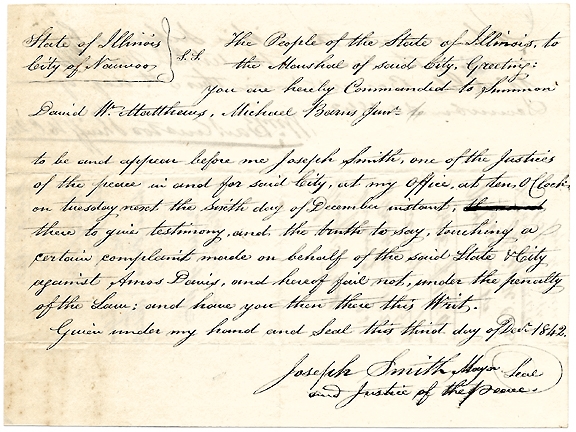 State of Illinois } S.S. The People of the State of Illinois, to
City of Nauvoo the Marshal of said City, Greeting:
You are hereby Commanded to Summon
David W. Matthews, Michael Barns Junr.
to be and appear before me Joseph Smith, one of the Justices
of the peace in and for said City, at my office, at ten, O Clock
on tuesday next the Sixth day of December instant,
there to give testimony, and the truth to say, touching a
certain complaint made on behalf of the said State & City
against Amos Davis, and hereof fail not, under the penalty
of the Law; and have you then there this Writ.
Given under my hand and Seal this third day of Dec. 1842.
Joseph Smith Mayor Seal
and Justice of the peace